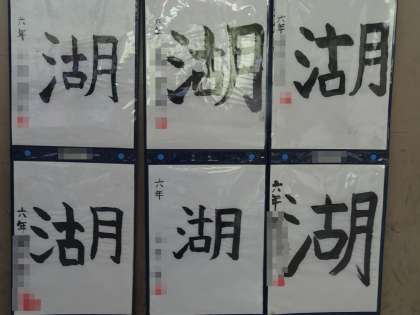 湖
六年
湖
六年
湖
六年
湖
六年
湖
六年
湖
六年